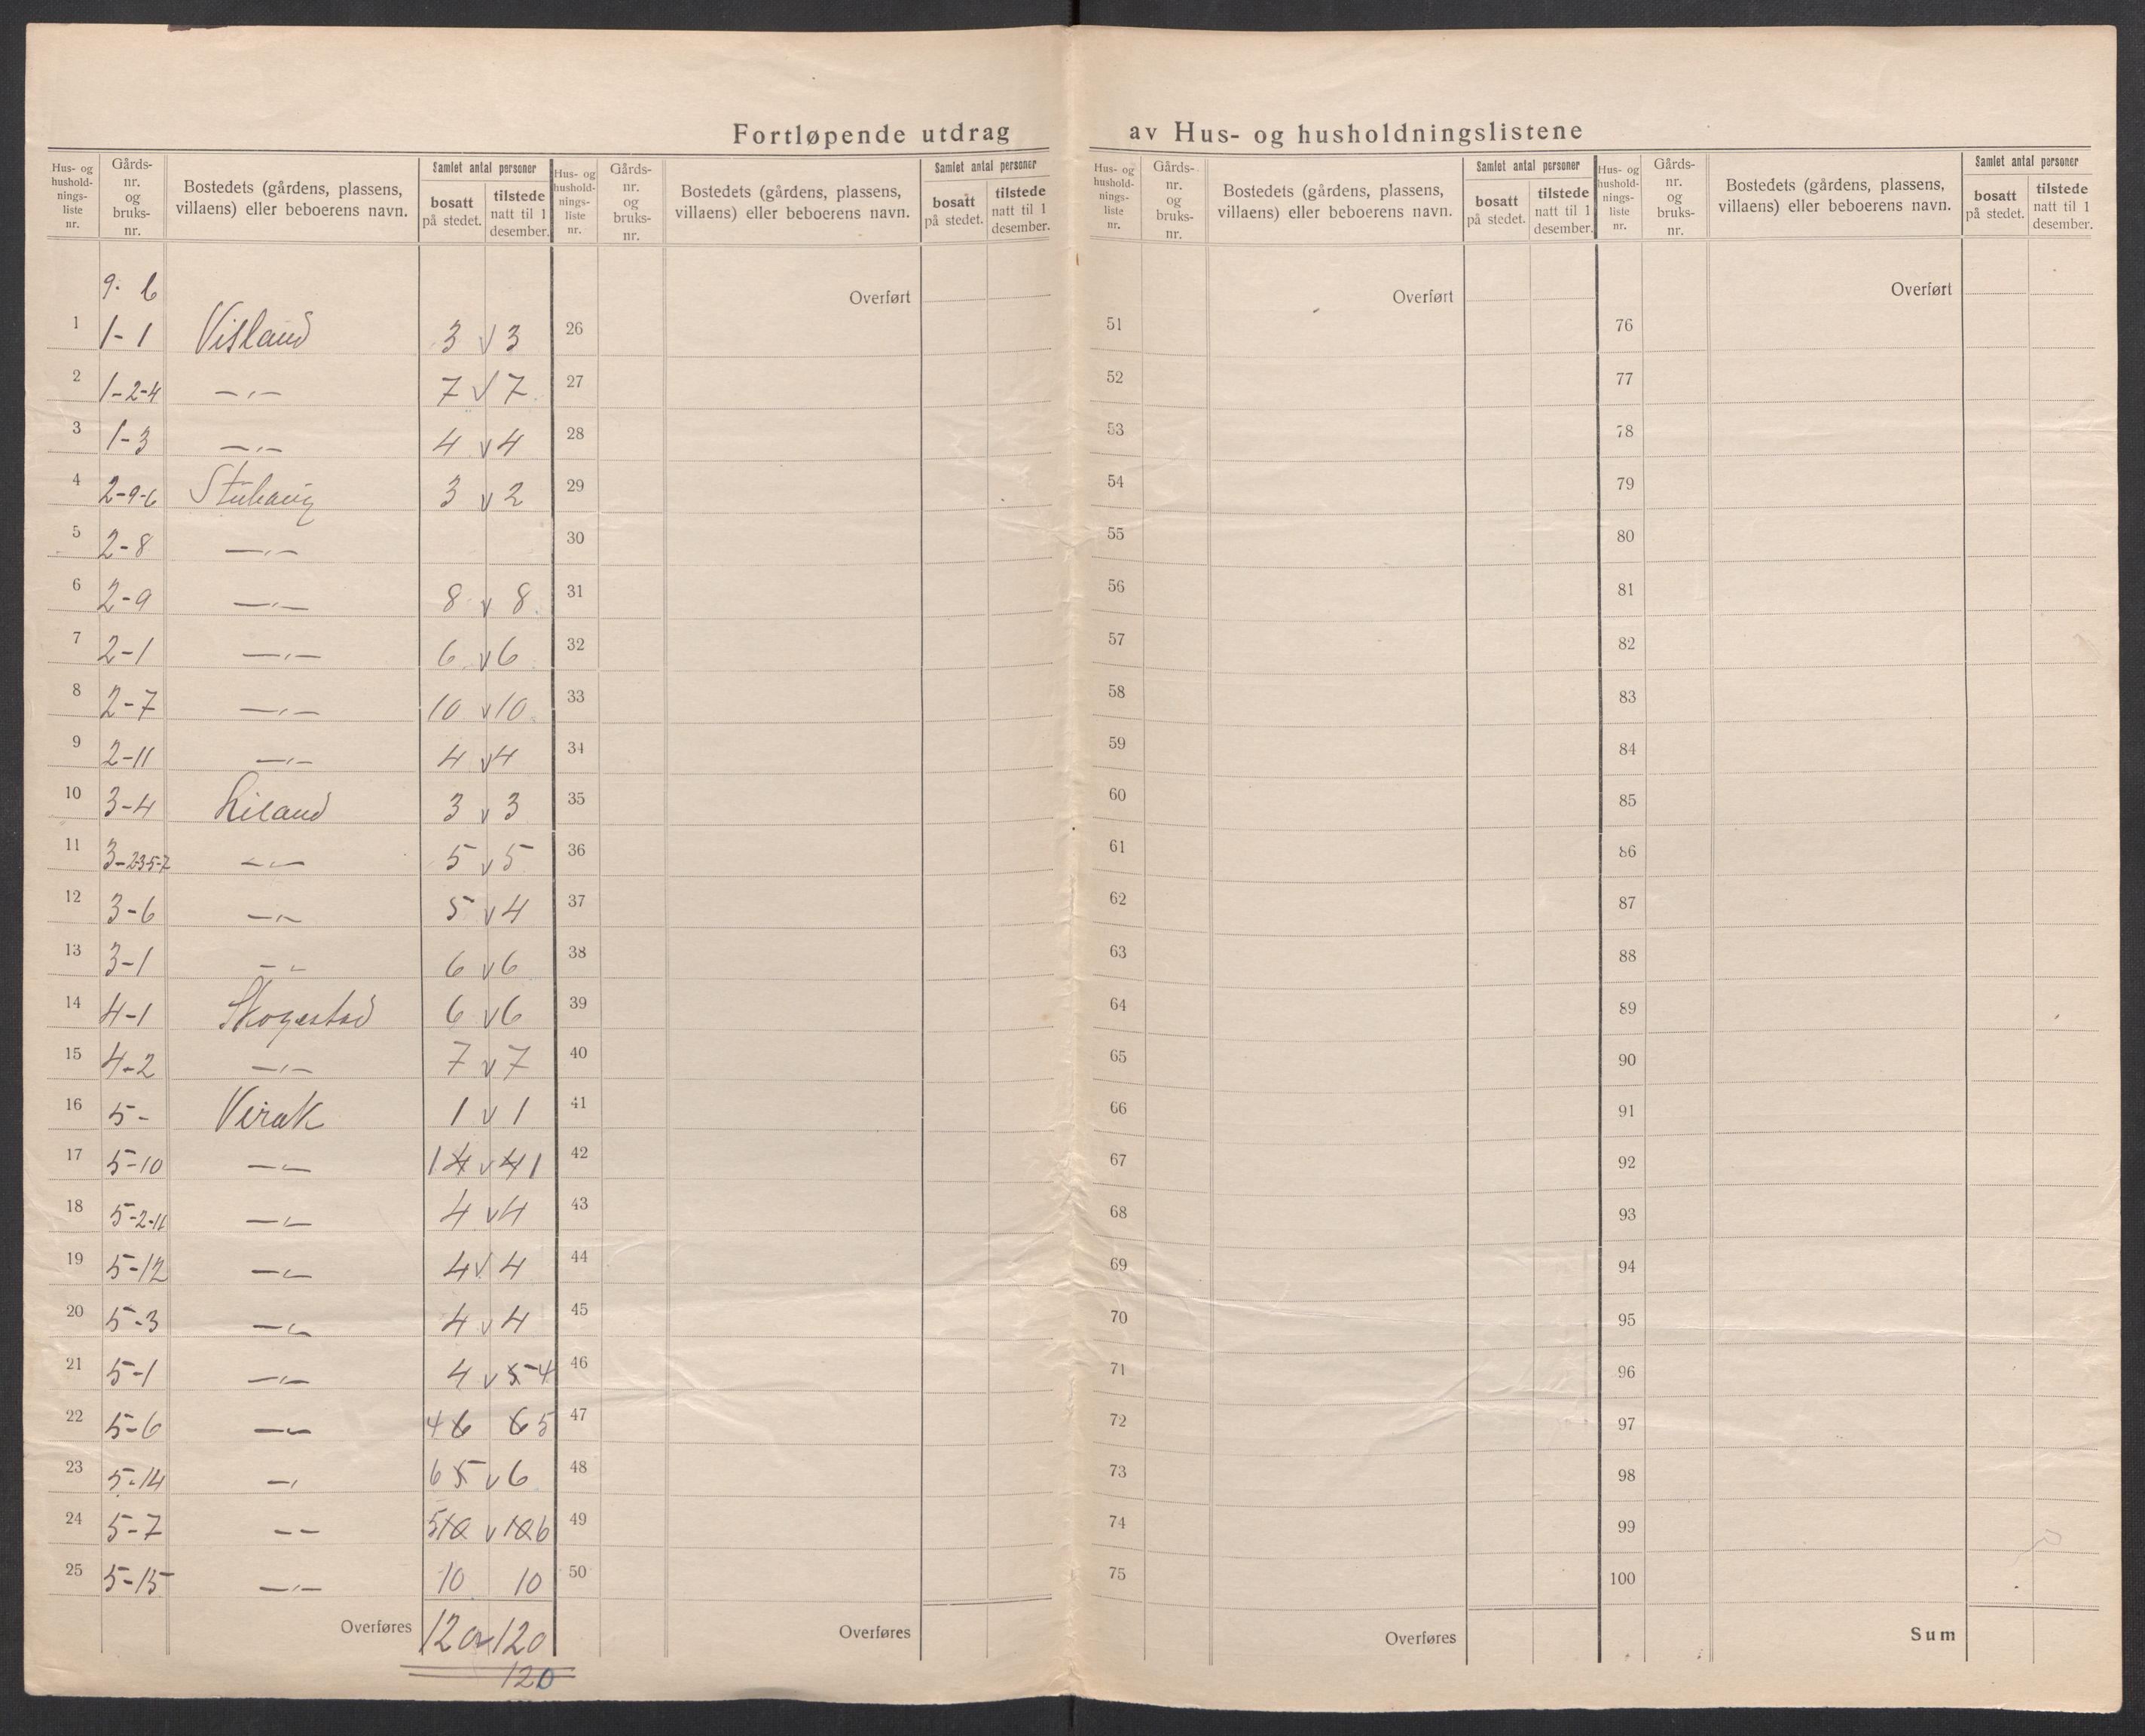 Fortløpende utdrag av Hus- og husholdningslistene
Hus- og husholdnings-liste nr. | Gårds-nr. og bruks-nr. | Bostedets (gårdens, plassens, villaens) eller beboerens navn. | Samlet antal personer | bosatt på stedet. | tilstede natt til 1 desember.
Hus- og husholdnings-liste nr. | Gårds-nr. og bruks-nr. | Bostedets (gårdens, plassens, villaens) eller beboerens navn. | Samlet antal personer | bosatt på stedet. | tilstede natt til 1 desember.
Hus- og husholdnings-liste nr. | Gårds-nr. og bruks-nr. | Bostedets (gårdens, plassens, villaens) eller beboerens navn. | Samlet antal personer | bosatt på stedet. | tilstede natt til 1 desember.
Hus- og husholdnings-liste nr. | Gårds-nr. og bruks-nr. | Bostedets (gårdens, plassens, villaens) eller beboerens navn. | Samlet antal personer | bosatt på stedet. | tilstede natt til 1 desember.
9. b | Overført | Overført | Overført
1 | 1-1 | Visland | 3 v 3 | 26 | 51 | 76
2 | 1-2-4 | -"- | 7 v 7 | 27 | 52 | 77
3 | 1-3 | -"- | 4 v 4 | 28 | 53 | 78
4 | 2-9-6 | 3 v 2 | 29 | 54 | 79
5 | 2-8 | -"- | 30 | 55 | 80
6 | 2-9 | -"- | 8 v 8 | 31 | 56 | 81
7 | 2-1 | -"- | 6 v 6 | 32 | 57 | 82
8 | 2-7 | -"- | 10 v 10 | 33 | 58 | 83
9 | 2-11 | -"- | 4 v 4 | 34 | 59 | 84
10 | 3-4 | Liland | 3 v 3 | 35 | 60 | 85
11 | 3-2-3-5-7 | -"- | 5 v 5 | 36 | 61 | 86
12 | 3-6 | -"- | 5 v 4 | 37 | 62 | 87
13 | 3-1 | -"- | 6 v 6 | 38 | 63 | 88
14 | 4-1 | Skogestad | 6 v 6 | 39 | 64 | 89
15 | 4-2 | -"- | 7 v 7 | 40 | 65 | 90
16 | 5- | Virak | 1 v 1 | 41 | 66 | 91
17 | 5-10 | -"- | 1 4 v 4 1 | 42 | 67 | 92
18 | 5-2-11 | -"- | 4 v 4 | 43 | 68 | 93
19 | 5-12 | -"- | 4 v 4 | 44 | 69 | 94
20 | 5-3 | -"- | 4 v 4 | 45 | 70 | 95
21 | 5-1 | -"- | 4 v 5 4 | 46 | 71 | 96
22 | 5-6 | -"- | 4 6 6 5 | 47 | 72 | 97
23 | 5-14 | -" | 6 5 v 6 | 48 | 73 | 98
24 | 5-7 | -- | 5 10 v 10 6 | 49 | 74 | 99
25 | 5-15 | -"- | 10 10 | 50 | 75 | 100
Overføres | 120 v 120 | Overføres | Overføres | Sum
120